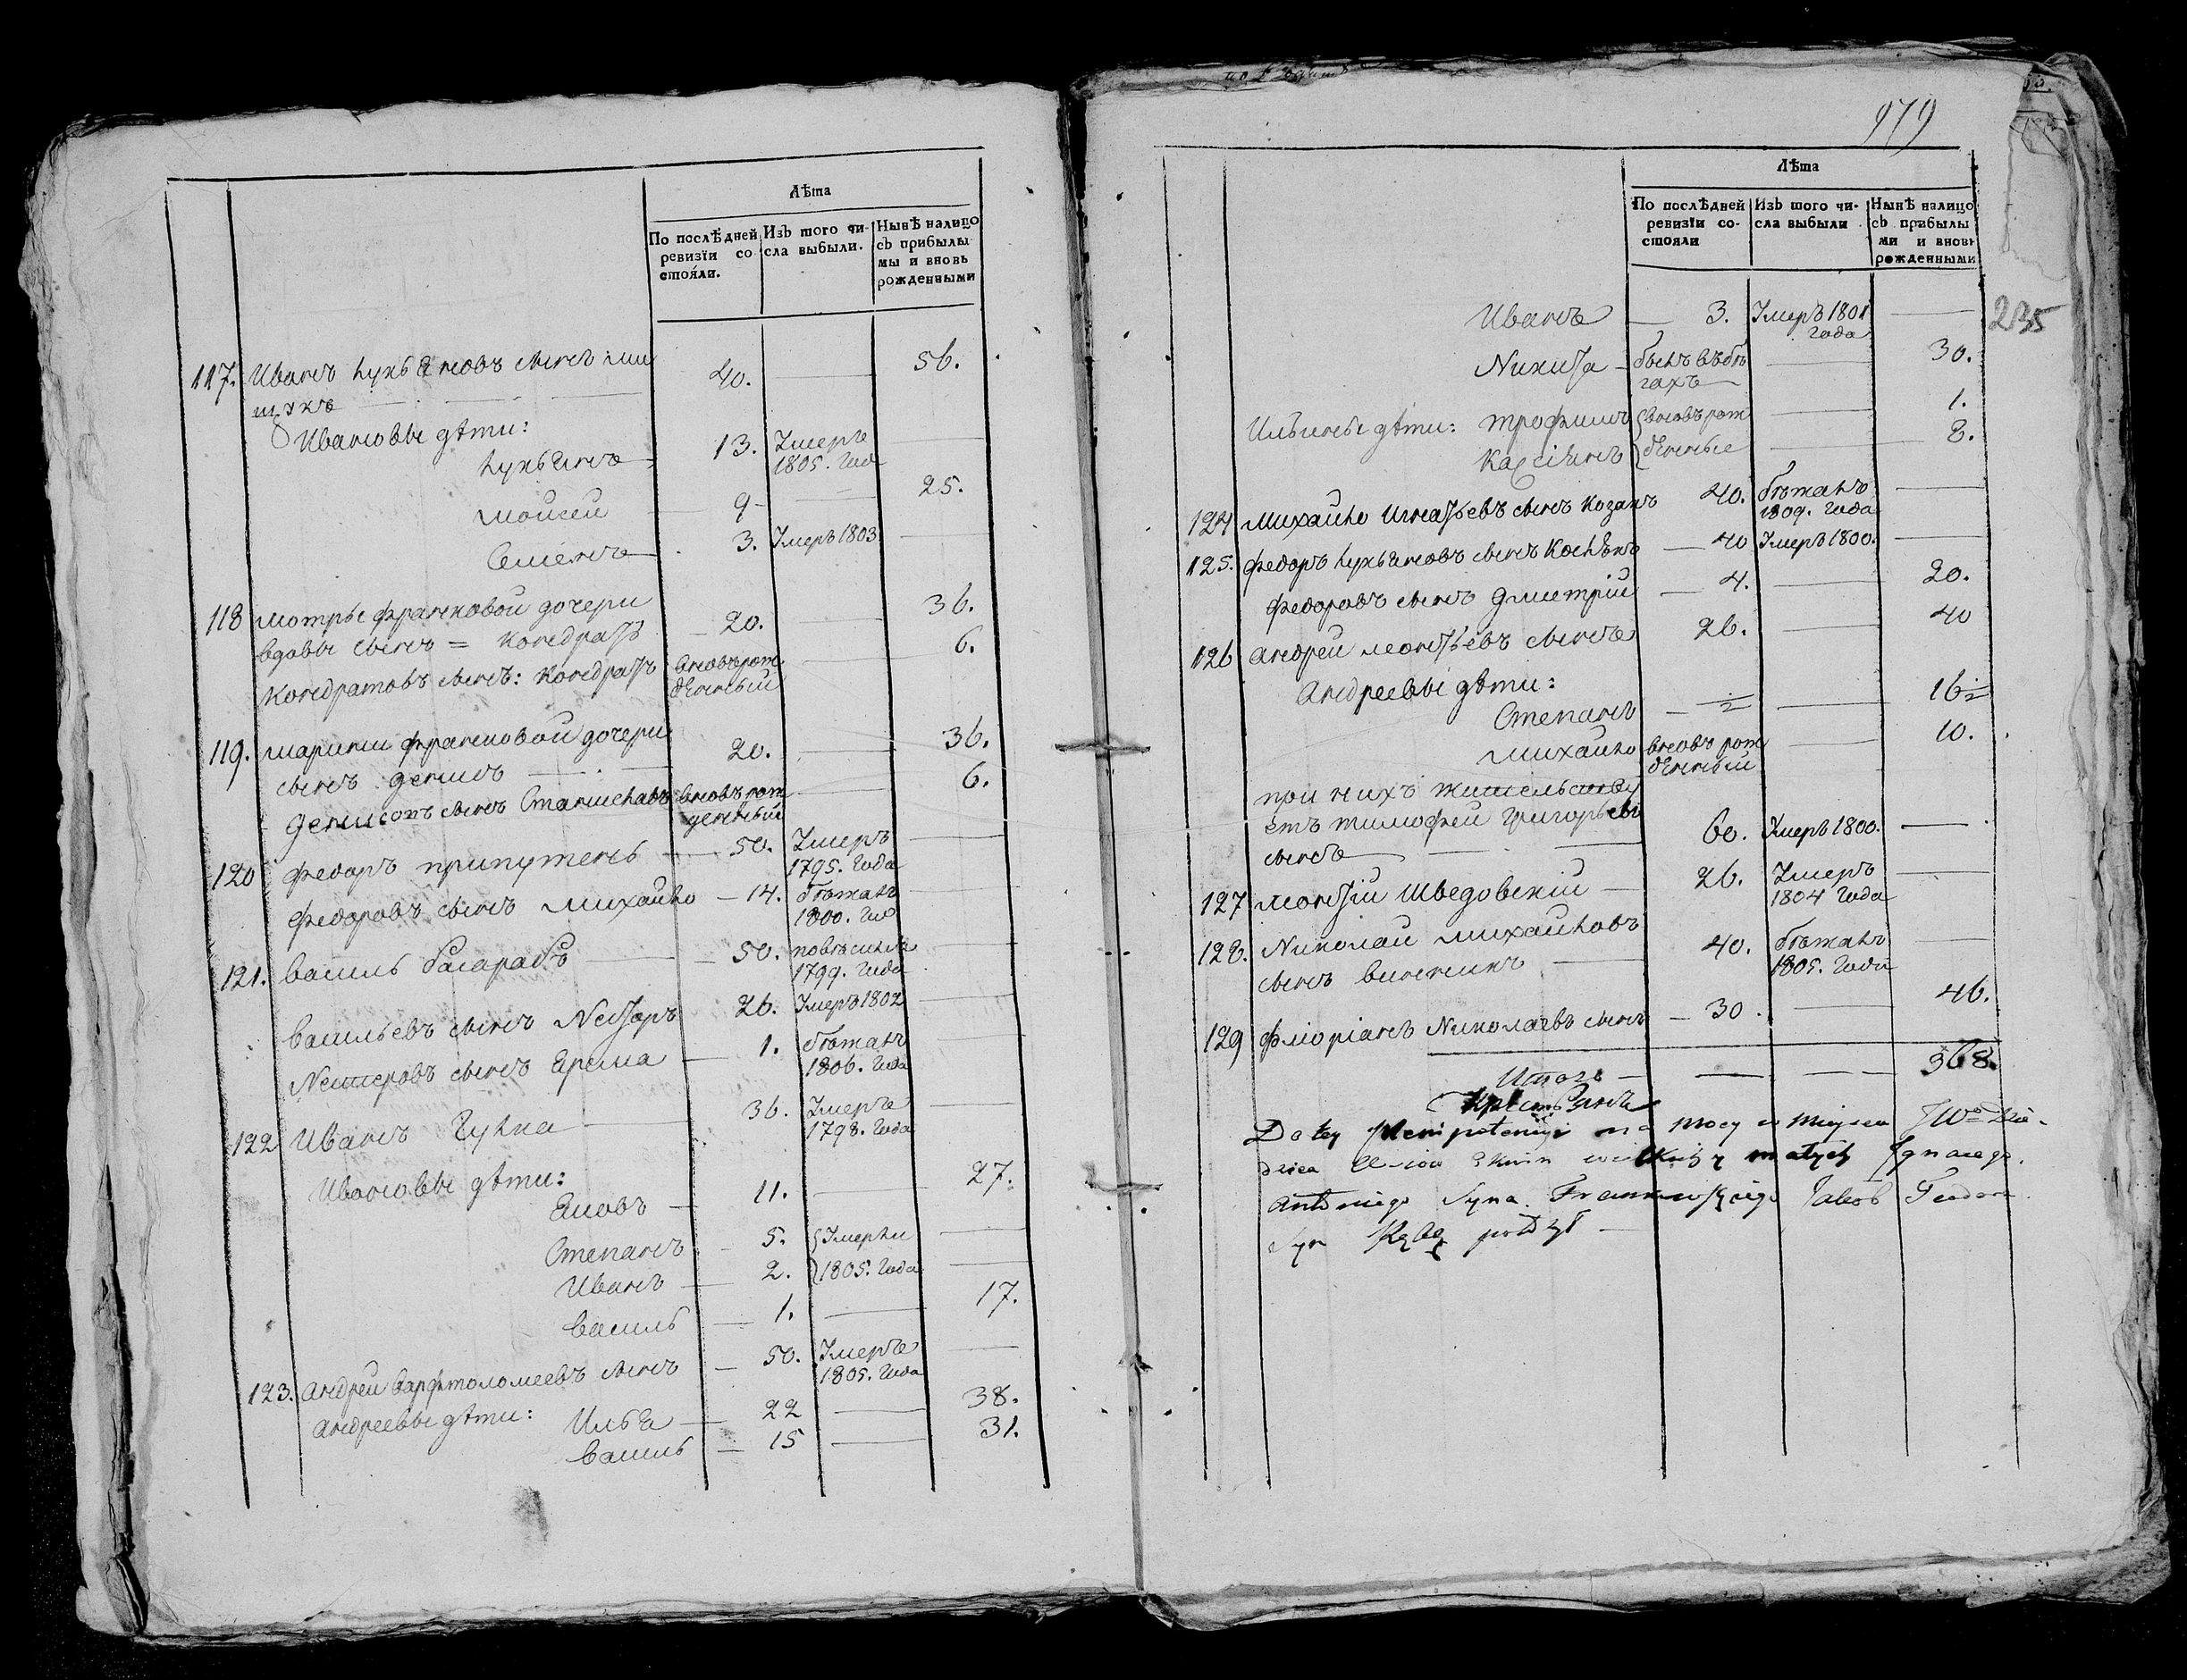 Лѣта
По послѣдней ревизїи со-
стояли.
Изъ того чи-
сла выбыли.
Нынѣ налицо
съ прибылы
мы и вновь
рожденными
117. Иванъ Лукьяновъ сынъ 40. — 56.
Ивановы дѣти:
Лукьянъ 13. Умеръ
1805. Года —
Моисей 9 — 25.
Семенъ 3. Умеръ 1803 —
118 Мотры Франковой дочери
вдовы сынъ = Кондратъ 20. — 36.
Кондратовъ сынъ: Кондратъ вновь рож
денный — 6.
119. Марины Франковой дочери
сынъ Денисъ 20. — 36.
Денисовъ сынъ Станиславъ вновь рож
денный — 6.
120 Федоръ Припутень 50. Умеръ
1795. Года —
Федоровъ сынъ Михайло — 14. бѣжалъ
1800. Го —
121. Василь Басарабъ 50. повѣсился
1799. Года —
Васильевъ сынъ Несторъ 26. Умеръ 1802 —
Нестеровъ сынъ Ерема 1. бѣжалъ
1806. Года —
122 Иванъ Гулка 36. Умеръ
1798. Года —
Ивановы дѣти:
Яковъ — 11. — 27.
Степанъ 5. Умерли —
Иванъ — 2. 1805. Года —
Василь — 1. — 17.
123. Андрей Варфтоломеевъ сынъ — 50. Умеръ
1805. Года —
Андреевы дѣти: Илья — 22 — 38.
Василь — 15 — 31.
979
Лѣта
По послѣдней
ревизїи со-
стояли
Изъ того чи-
сла выбыли
Нынѣ налицо
съ прибылы
ми и вновь
рожденными
235
Иванъ — 3. Умеръ 1801
Года —
Никита — былъ въ бѣ
гахъ — 30.
Ильины дѣти: Трофимъ вновь рож — 1.
Касіянъ денные — 8.
124 Михайло Игнатьевъ сынъ Козакъ 40. бѣжалъ
1809. Года —
125. Федоръ Лукьяновъ сынъ — 40 Умеръ 1800. —
Федоровъ сынъ Дмитрій — 4. — 20.
126 Андрей Леонтьевъ сынъ 26. — 40
Андреевы дѣти:
Степанъ — ½ — 16½
Михайло вновь рож
денный — 10.
при нихъ
Тимофей Григорьевъ
сынъ — 60. Умеръ 1800. —
127 Леонтій Шведовскій — 26. Умеръ
1804 Года —
128. Николай Михайловъ
сынъ 40. бѣжалъ
1805. Года —
129 Флоріанъ Николаевъ сынъ — 30. — 46.
Итого — — — 368.
Do tey mocy
Ignacego
Antoniego Syna Jakob
Syn Rękę położył —